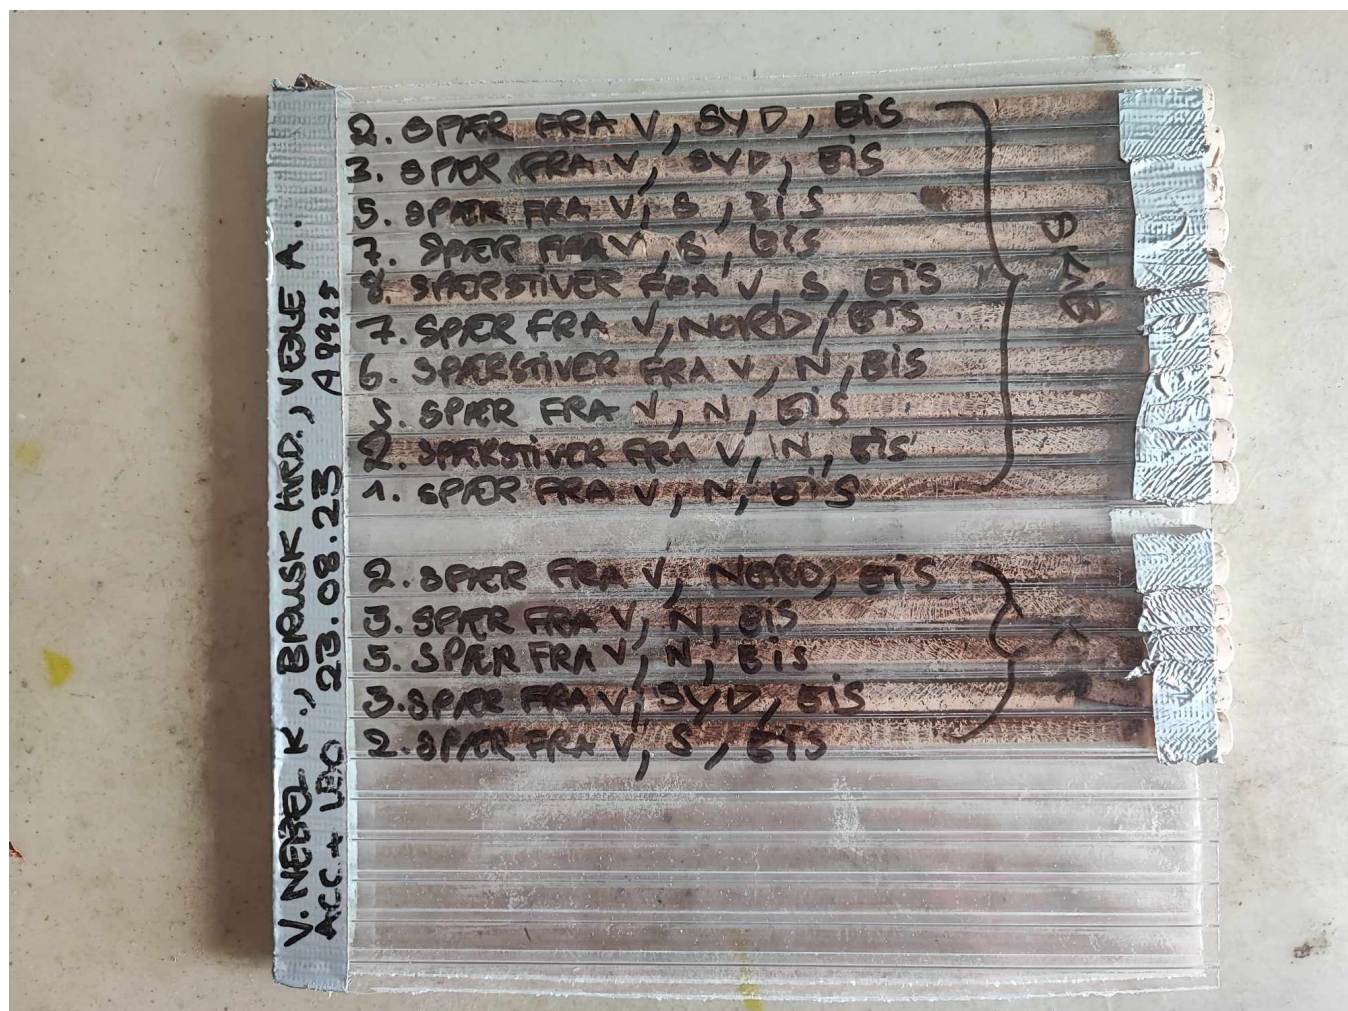 V. NEBEL K., BRUSK HRD., VEJLE A.
ACC. + LEO 23.08.23 A9925
2. SPÆR FRA V, SYD, EIS
3. SPÆR FRA V, SYD, EIS
5. SPÆR FRA V, S, EIS
7. SPÆR FRA V, S, EIS
8. SPÆRSTIVER FRA V, S, EIS
7. SPÆR FRA V, NORD, EIS
6. SPÆRSTIVER FRA V, N, EIS
5. SPÆR FRA V, N, EIS
2. SPÆRSTIVER FRA V, N, EIS
1. SPÆR FRA V, N, EIS
2. SPÆR FRA V, NORD, EIS
3. SPÆR FRA V, N, EIS
5. SPÆR FRA V, N, EIS
3. SPÆR FRA V, SYD, EIS
2. SPÆR FRA V, S, EIS